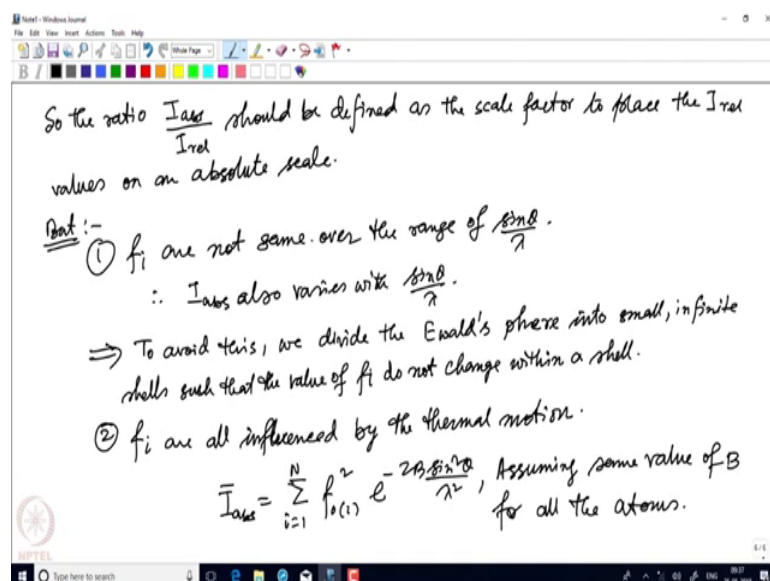 Note1 - Windows Journal
File Edit View Insert Actions Tools Help
Whole Page
B I
So the ratio I_abs / I_rel should be defined as the scale factor to place the I_rel
values on an absolute scale.
But :-
① f_i are not same. over the range of sinθ/λ.
∴ I_abs also varies with sinθ/λ.
⇒ To avoid this, we divide the Ewald's sphere into small, infinite
shells such that the value of f_i do not change within a shell.
② f_i are all influenced by the thermal motion.
Ī_abs = Σ_{i=1}^{N} f²_{o(i)} e^{-2B sin²θ/λ²}, Assuming same value of B
for all the atoms.
NPTEL
6/6
Type here to search
ENG
09:37